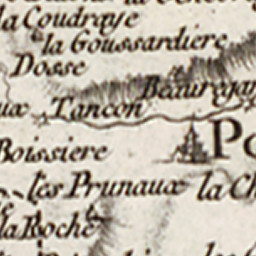 la Coudraye
la Goussardiere
Dosse
Beauregar
aux Tancon
Boissiere
Po
les Prunaux la Ch
la Roche